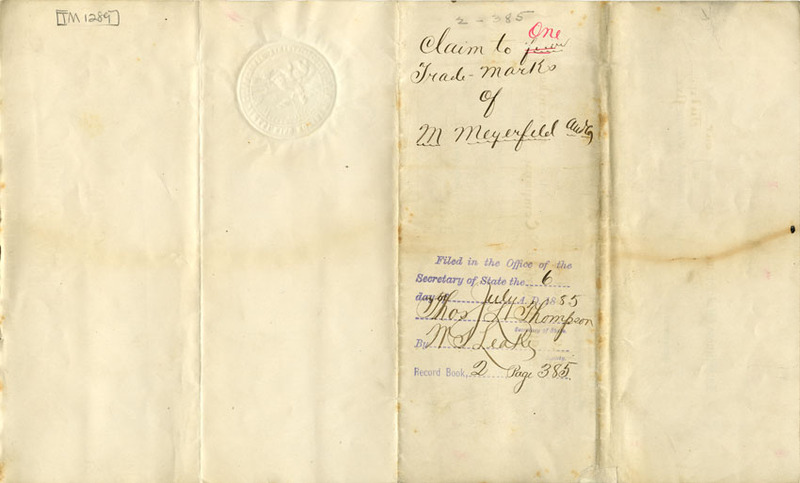 TM 1289
2 - 385
Claim to One
Trade-Marks
of
M Meyerfeld and Co
Filed in the Office of the
Secretary of State the 6
day of July A. D. 1885
Thos L Thompson
Secretary of State.
By W. J. Leake
Record Book, 2 Page 385.